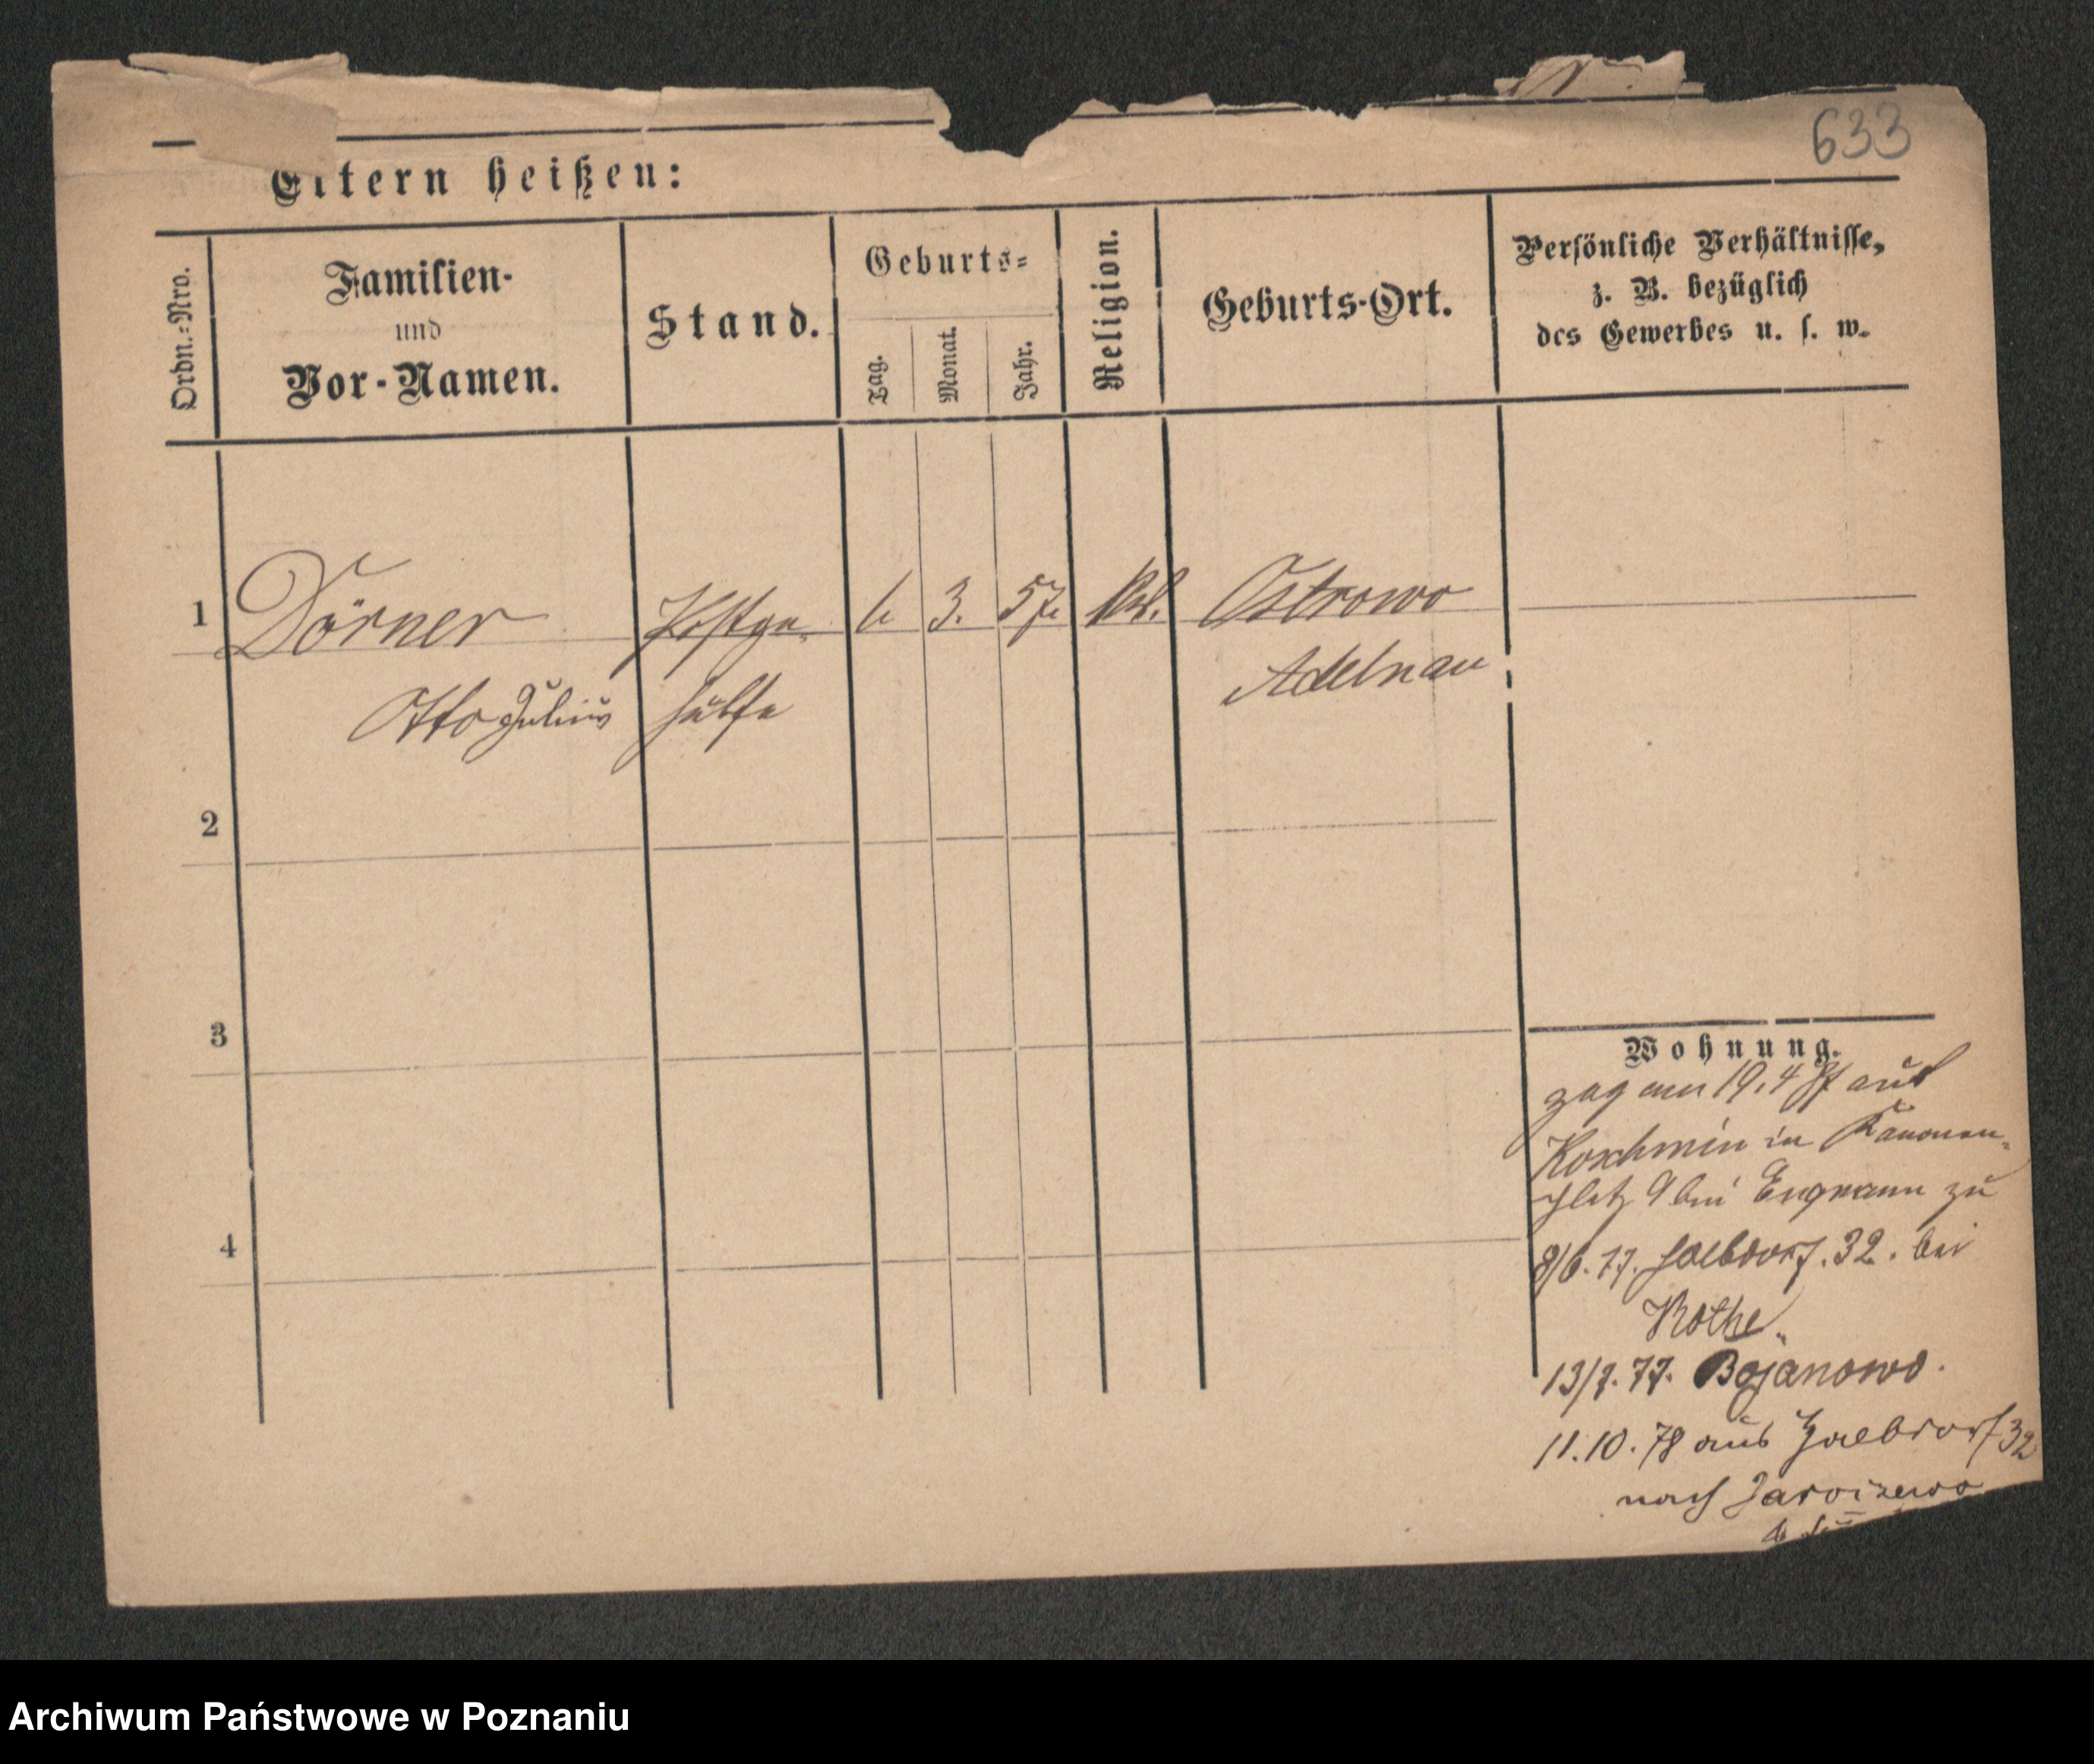 633
Eltern heißen:
Ordn.=Nro.
Familien-
und
Vor-Namen.
Stand.
Geburts=
Tag.
Monat.
Jahr.
Religion.
Geburts-Ort.
Persönliche Verhältnisse,
z. B. bezüglich
des Gewerbes u. s. w.
1 Dörner Postge= 6 3. 57. Ostrowo
Otto Julius hülfe Adelnau
2
3
4
Wohnung.
zog am 19.4 77 aus
Koschmin in Kanonen=
platz 9 bei Engmann zu
8/6. 77. Halbdorf. 32. bei
Rothe.
13/7. 77. Bojanowo.
11.10.78 aus Halbdorf 32
nach
Archiwum Państwowe w Poznaniu